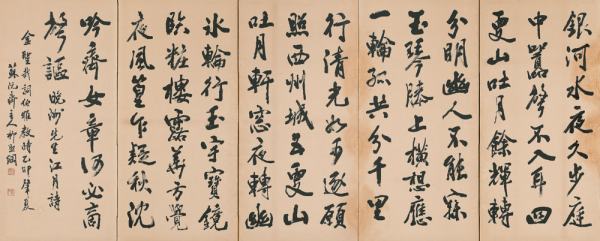 銀河水夜久步庭
中囂聲不入耳四
更山吐月餘輝轉
分明幽人不能寐
玉琴膝上橫想應
一輪孤共分千里
行清光如可逐願
照西州城五更山
吐月軒窓夜轉幽
氷輪行玉宇寶鏡
臨粧樓露華方覺
夜風篁乍疑秋沈
吟齊女章何必商
聲謳 晚洲先生江月詩
金聖哉詞伯雅教時乙卯肇夏
蘇阮齋主人柳熙綱